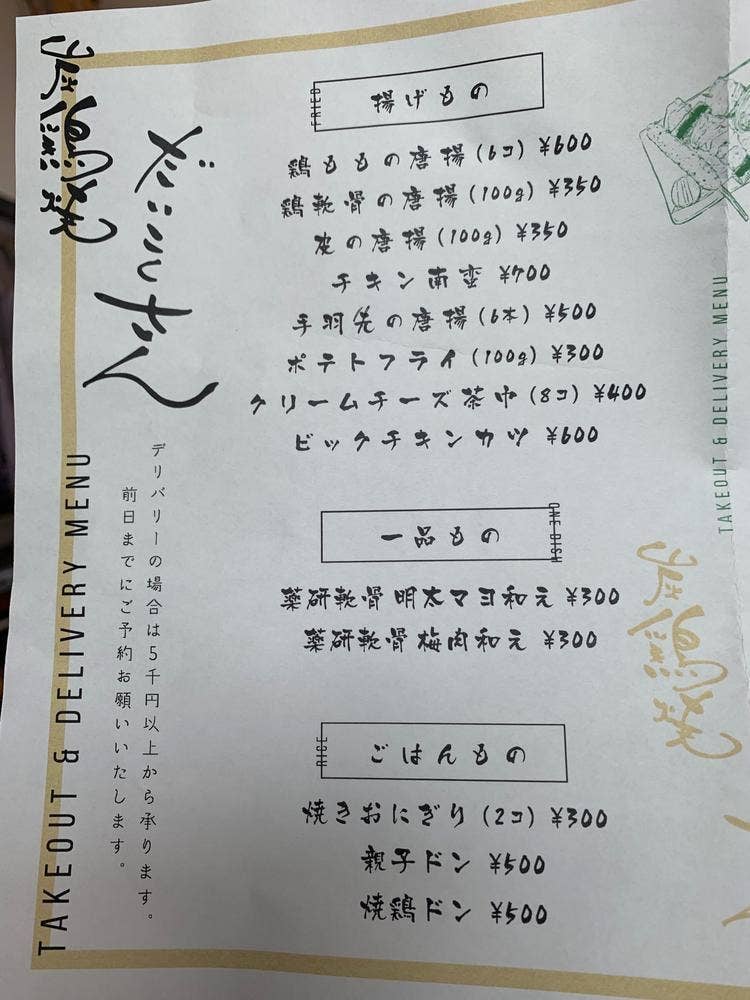 炭火焼鳥
だいこくさん
TAKEOUT & DELIVERY MENU
デリバリーの場合は5千円以上から承ります。
前日までにご予約お願いいたします。
FRIED
揚げもの
鶏ももの唐揚(6コ) ¥600
鶏軟骨の唐揚(100g) ¥350
皮の唐揚(100g) ¥350
チキン南蛮 ¥700
手羽先の唐揚(6本) ¥500
ポテトフライ(100g) ¥300
クリームチーズ茶巾(8コ) ¥400
ビックチキンカツ ¥600
一品もの
薬研軟骨明太マヨ和え ¥300
薬研軟骨梅肉和え ¥300
RICE
ごはんもの
焼きおにぎり(2コ) ¥300
親子ドン ¥500
焼鶏ドン ¥500
TAKEOUT & DELIVERY MENU